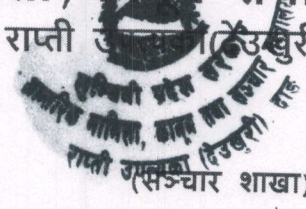 राप्ती उपत्यका(देउखुरी
लुम्बिनी प्रदेश सरकार
आन्तरिक मामिला, कानून तथा सञ्चार
राप्ती उपत्यका (देउखुरी) दाङ
(सञ्चार शाखा)